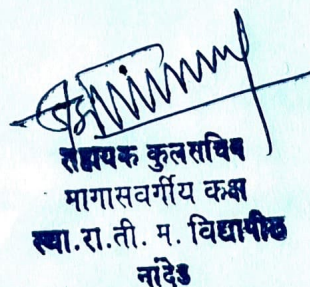 सहाय्यक कुलसचिव
मागासवर्गीय कक्ष
स्वा.रा.ती. म. विद्यापीठ
नांदेड